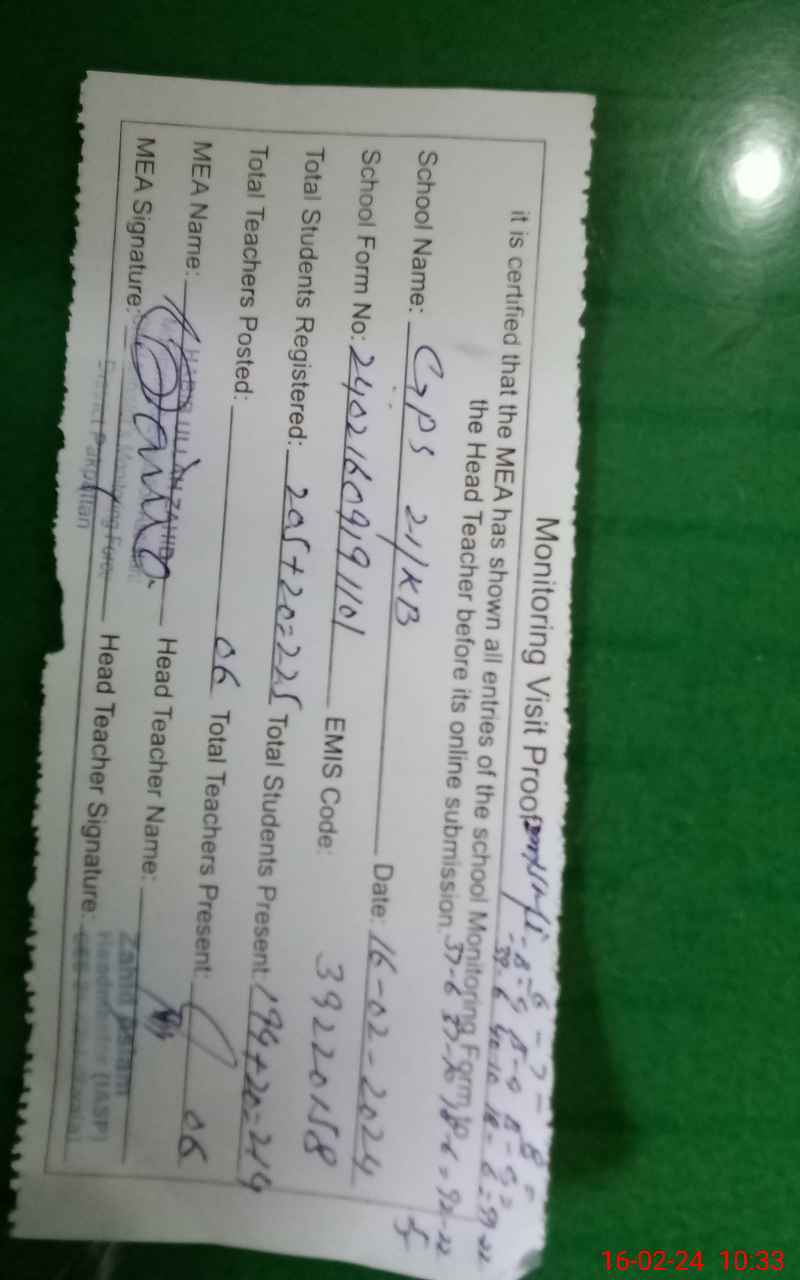 Monitoring Visit Proof
it is certified that the MEA has shown all entries of the school Monitoring Form to
the Head Teacher before its online submission.
School Name: GPS 21/KB Date: 16-02-2024
School Form No: 24021609191101 EMIS Code: 39220158
Total Students Registered: 205+20=225 Total Students Present: 194+20=214
Total Teachers Posted: 06 Total Teachers Present: 06
MEA Name: Head Teacher Name:
MEA Signature: Head Teacher Signature:
Zahid
Headmaster (IASP)
District Pakpattan
16-02-24 10:33